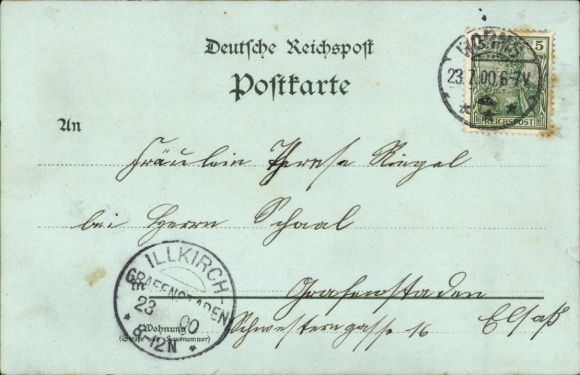 Deutsche Reichspost
Postkarte
WORMS
23.7.00.6-7V.
5
REICHSPOST
An
Fräulein Therese Riegel
bei Herrn Schaal
ILLKIRCH-
GRAFENSTADEN
23
00
8-12N
Grafenstaden
Wohnung
(Straße und Hausnummer)
Schwesterngasse 16 Elsaß